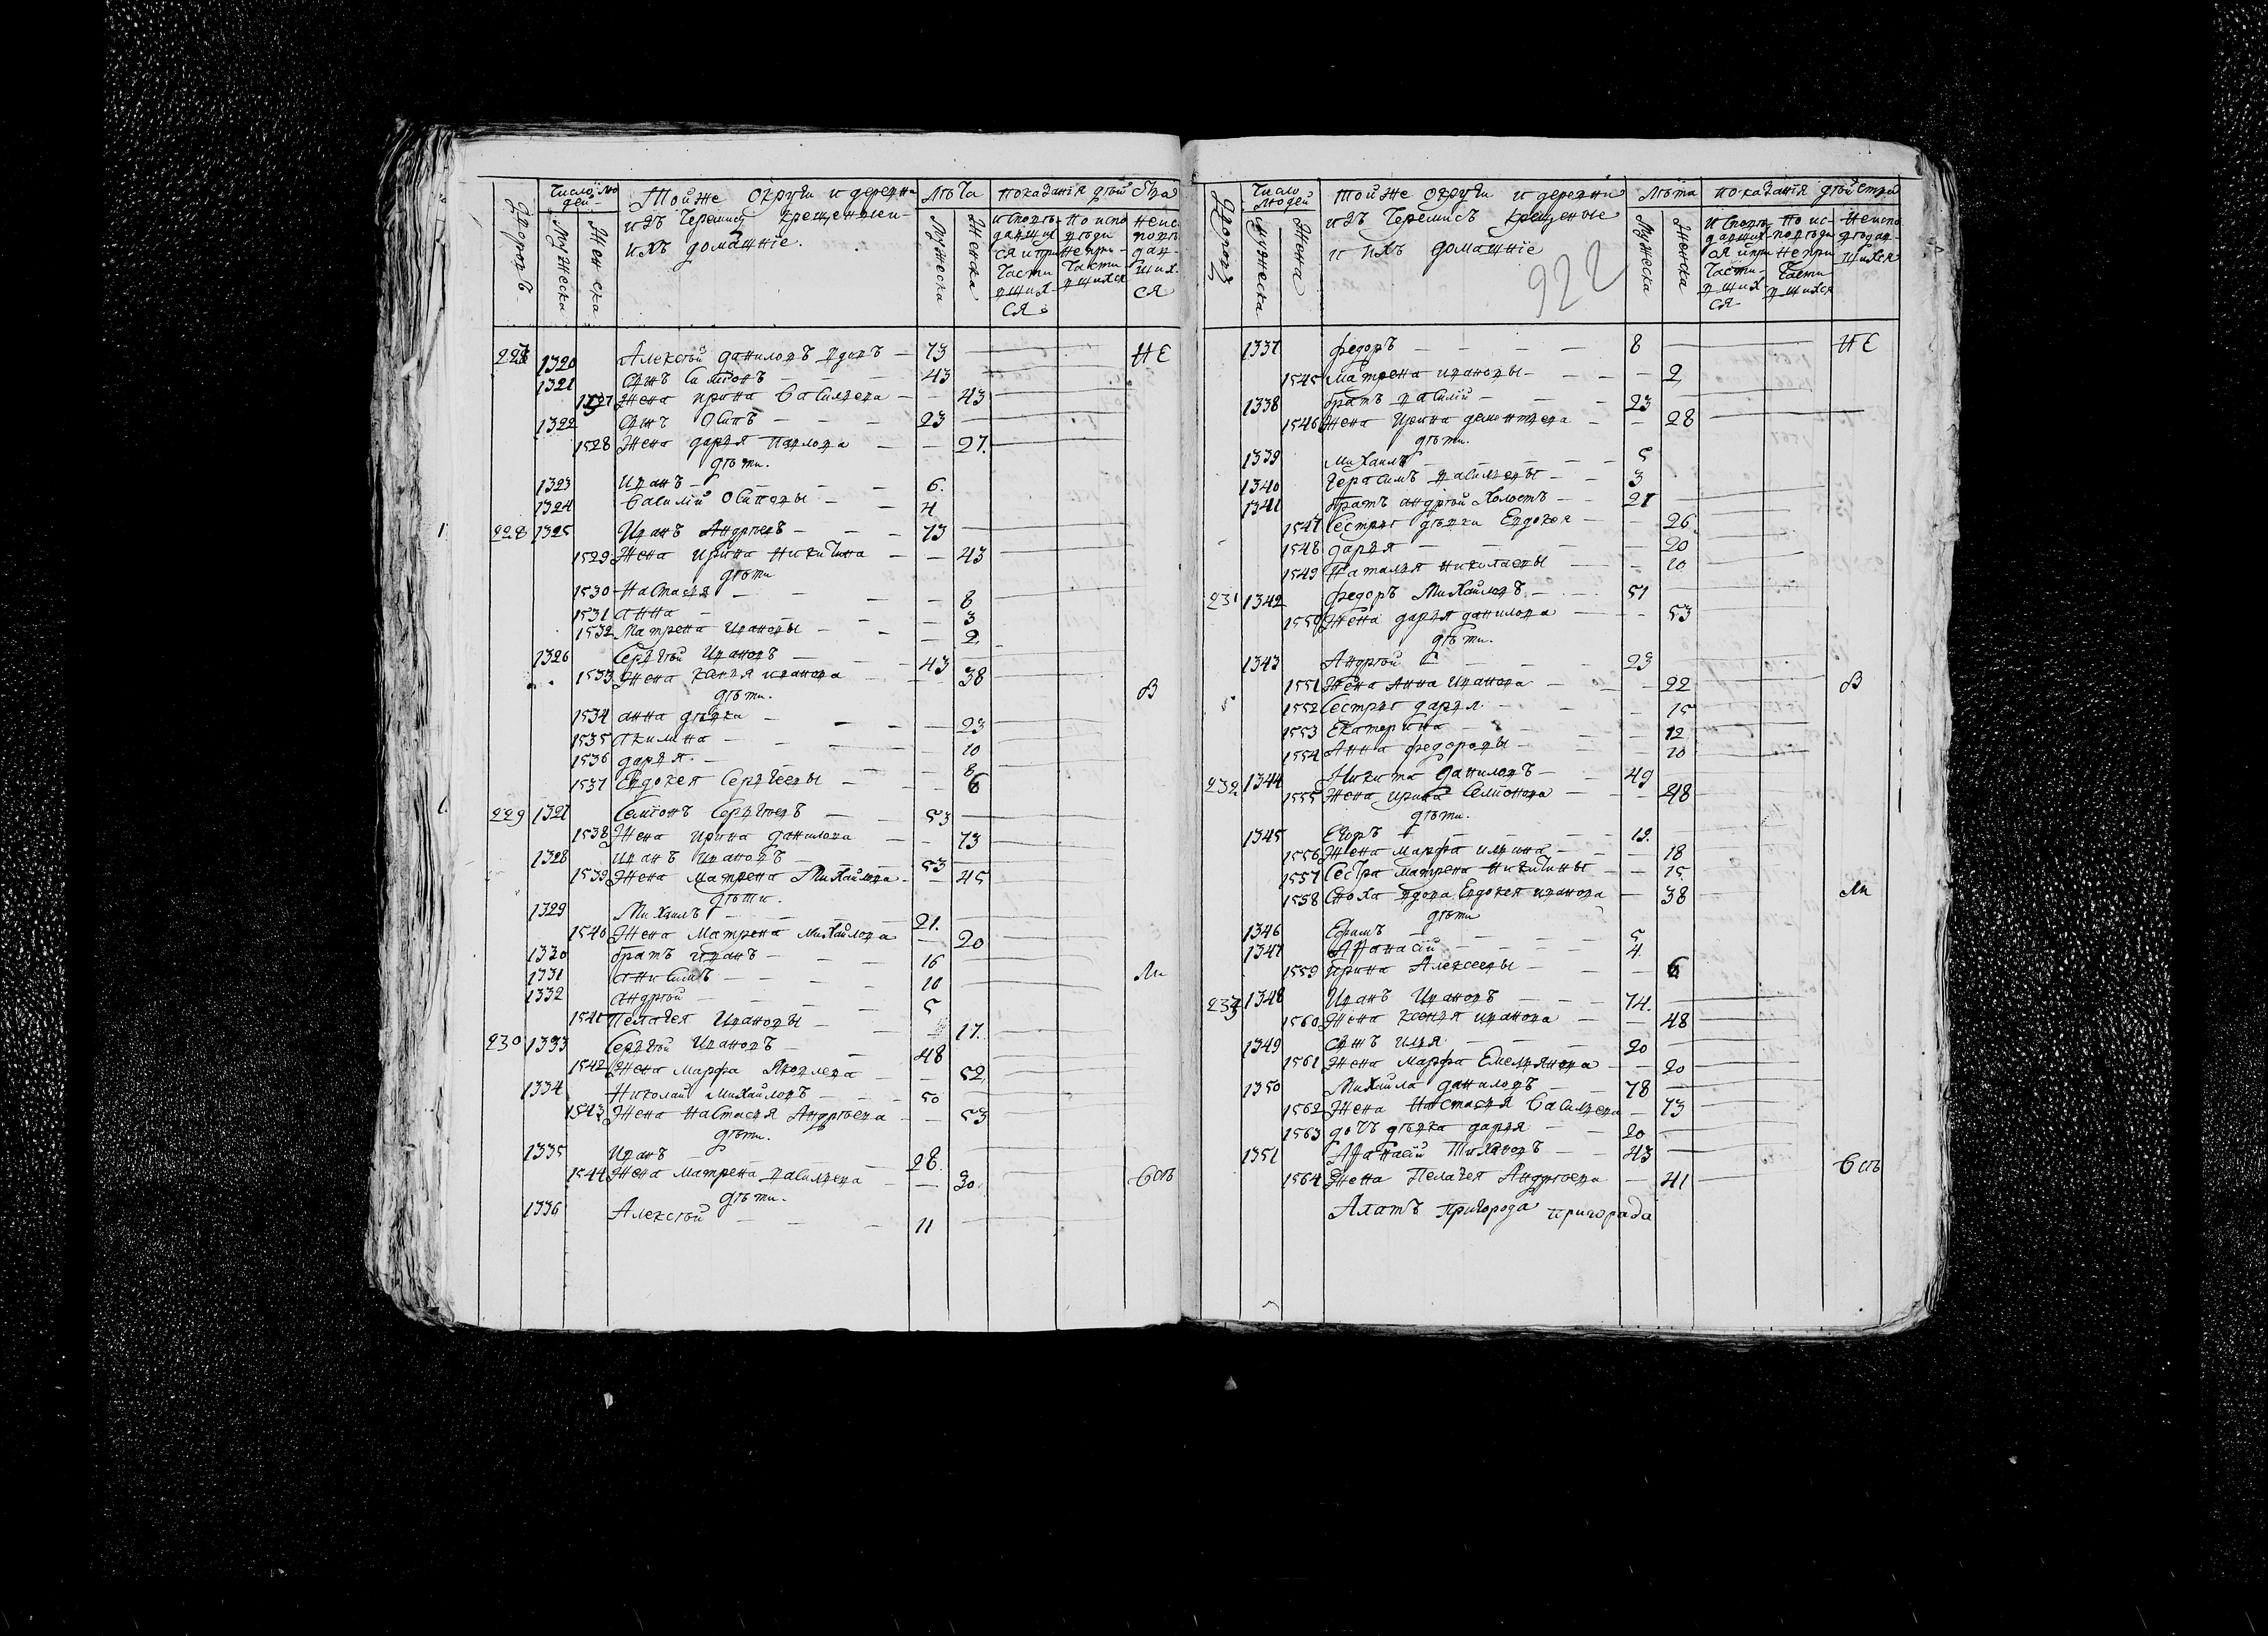 Дворовъ
Число людей
Мужеска
Женска
Тойже Округи и деревни
изъ Черемисъ Крещенныя
ихъ домашние.
Лѣта
Мужеска
Женска
показания действа
исповѣдавшихся и причастившихся
По исповѣди не причастившихся
неисповѣдавшихся
227 1320 Алексѣй даниловъ вдовъ — 73 НЕ
1321 Сынъ Симіонъ — 43
1527 Жена ирина Василиева — 43
1322 Сынъ Осипъ — 23
1528 Жена дарья Павлова — 27.
дѣти.
1323 Иванъ — 6.
1324 Василий Осиповы — 4
228 1325 Иванъ Андрѣевъ — 73
1529 Жена ирина Никитина — 43
дѣти
1530 Настасья — 8
1531 анна — 3
1532 Матрена Ивановы — 2
1326 Сергѣй Ивановъ — 43
1533 Жена Ксенья иванова — 38 В
дѣти.
1534 анна дѣвка — 23
1535 акилина — 10
1536 дарья — 8
1537 Евдокея Сергѣевы — 6
229 1327 Семіонъ Сергѣевъ — 53
1538 Жена ирина данилова — 73
1328 иванъ ивановъ — 53
1539 Жена Матрена Михайлова — 45
дѣти.
1329 Михаилъ — 21.
1540 Жена Матрена Михайлова — 20
1330 братъ иванъ — 16
1331 анисимъ — 10 Ли
1332 андрѣй — 5
1541 Пелагея Ивановы — 17.
230 1333 Сергѣй Ивановъ — 48
1542 Жена марфа Яковлева — 52
1334 Николай Михайловъ — 50
1543 Жена Настасья Андрѣева — 53
дѣти.
1335 Иванъ — 28.
1544 Жена матрена василиева — 30. бытъ
дѣти.
1336 Алексѣй — 11
Дворовъ
Число людей
мужеска
Женска
тойже округи и деревни
изъ Черемисъ крещеные
и ихъ домашние
922
Лѣта
Мужеска
Женска
показания действа
исповѣдавшихся и причастившихся
По исповѣди не причастившихся
Неисповѣдавшихся
1337 федоръ — 8 НЕ
1545 матрена ивановы — 2
1338 братъ василій — 23
1546 Жена Ирина дементиева — 28
дѣти.
1339 михаилъ — 5
1340 Герасимъ василиевы — 3
1341 братъ андрѣй Холостъ — 21
1547 Сестры дѣвки Евдокея — 26.
1548 дарья — 20
1549 Наталья николаевы — 10
231 1342 федоръ Михайловъ — 51
1550 Жена дарья данилова — 53
дѣти.
1343 Андрѣй — 23
1551 Жена анна Иванова — 22 В
1552 Сестры дарья — 15
1553 Екатерина — 12
1554 Анна федоровы — 10
232. 1344 Никита даниловъ — 49
1555 Жена ирина Семіонова — 48
дѣти.
1345 Егоръ — 19.
1556 Жена марфа илина — 18
1557 Сестра матрена Никитины — 15.
1558 Сноха вдова Евдокея иванова — 38 Ли
дѣти
1346 Ефимъ — 5
1347 Афанасій — 4.
1559 Ирина Алексеевы — 6
233 1348 Иванъ Ивановъ — 74.
1560 Жена ксенья иванова — 48
1349 сынъ илья — 20
1561 Жена марфа Емельянова — 20
1350 Михаила даниловъ — 78
1562 Жена Настасья Василиева — 73
1563 дочь дѣвка дарья — 20
1351 Афанасій Тихановъ — 43
1564 Жена Пелагея Андрѣева — 41 бытъ
Алатъ Пригорода пригорада